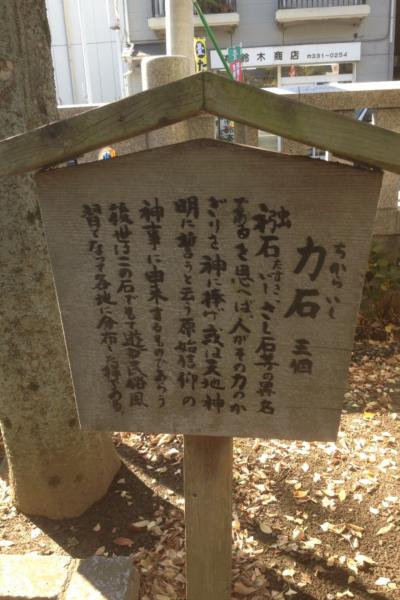 鈴木商店 331-0254
力石 三個
ちからいし
石 いし、さし石等の異名
であるを思へば、人がその力のか
ぎりを神に捧げ或は天地神
明に誓うと云う原始信仰の
神事に由来するものであろう
後世はこの石でもて遊ぶ民俗風
習となって各地に分布した様である。